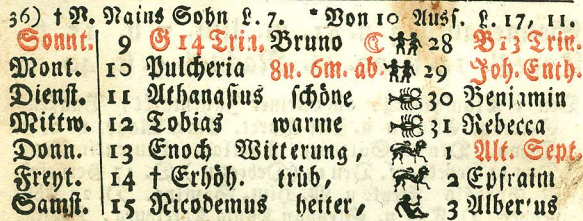 36) † V. Nains Sohn L. 7. * Von 10 Auss. L. 17, 11.
Sonnt. 9 G 14 Trin. Bruno 28 B 13 Trin.
Mont. 10 Pulcheria 8u. 6m. ab. 29 Joh. Enth.
Dienst. 11 Athanasius schöne 30 Benjamin
Mittw. 12 Tobias warme 31 Rebecca
Donn. 13 Enoch Witterung, 1 Alt. Sept.
Freyt. 14 † Erhöh. trüb, 2 Epfraim
Samst. 15 Nicodemus heiter, 3 Alberus